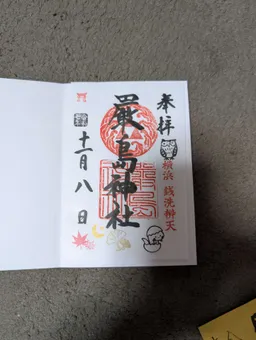 奉拝
横浜 銭洗辨天
厳島神社
十一月八日